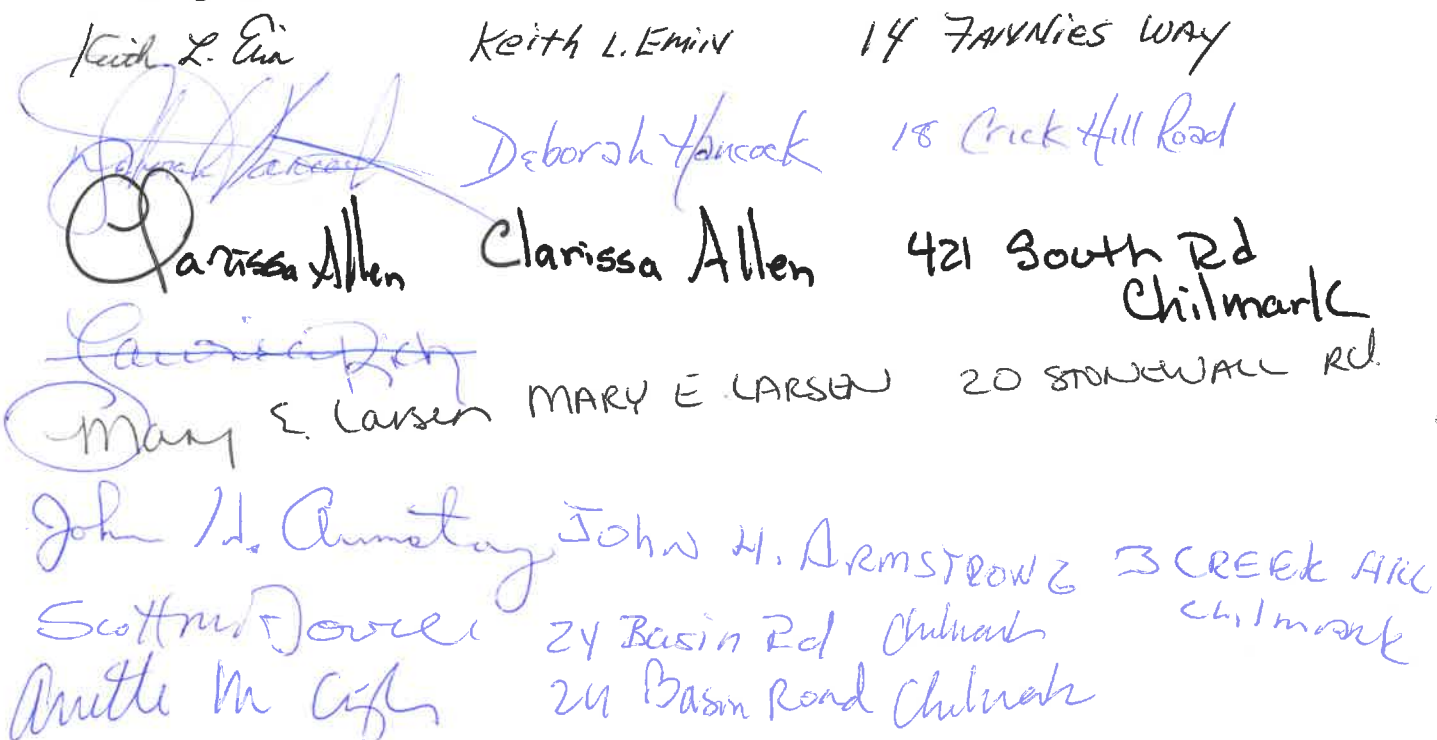 Keith L. Emin Keith L. Emin 14 FANNIES WAY
Deborah Hancock Deborah Hancock 18 Crick Hill Road
Clarissa Allen Clarissa Allen 421 South Rd
Chilmark
Rich
Mary E. Larsen MARY E LARSEN 20 STONEWALL Rd.
John H. Armstrong JOHN H. ARMSTRONG 3 CREEK HILL
Chilmark
Scott 24 Basin Rd Chilmark
M 24 Basin Road Chilmark